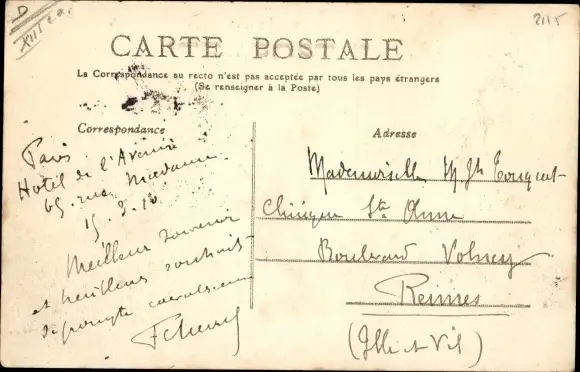 D
XIII
2115
CARTE POSTALE
La Correspondance au recto n'est pas acceptée par tous les pays étrangers
(Se renseigner à la Poste)
Correspondance
Paris
Hôtel de l'Avenir
65, rue Madame
15.3.10
Meilleur souvenir
et meilleurs souhaits
de prompte convalescence
Adresse
Mademoiselle
Clinique Ste Anne
Boulevard Volney
Rennes
(Ille et Vil)